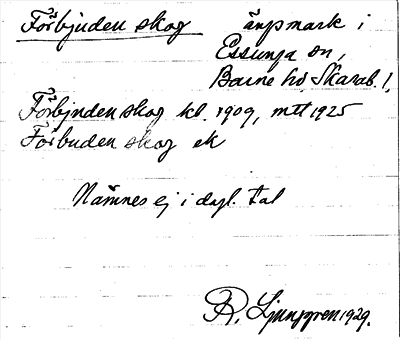 Förbjuden skog ängsmark i
Essunga sn,
Barne hd, Skarab. l,
Förbjuden skog kl. 1909, mtt 1925
Förbuden skog ek
Nämnes ej i dagl. tal
R. Ljunggren 1929.